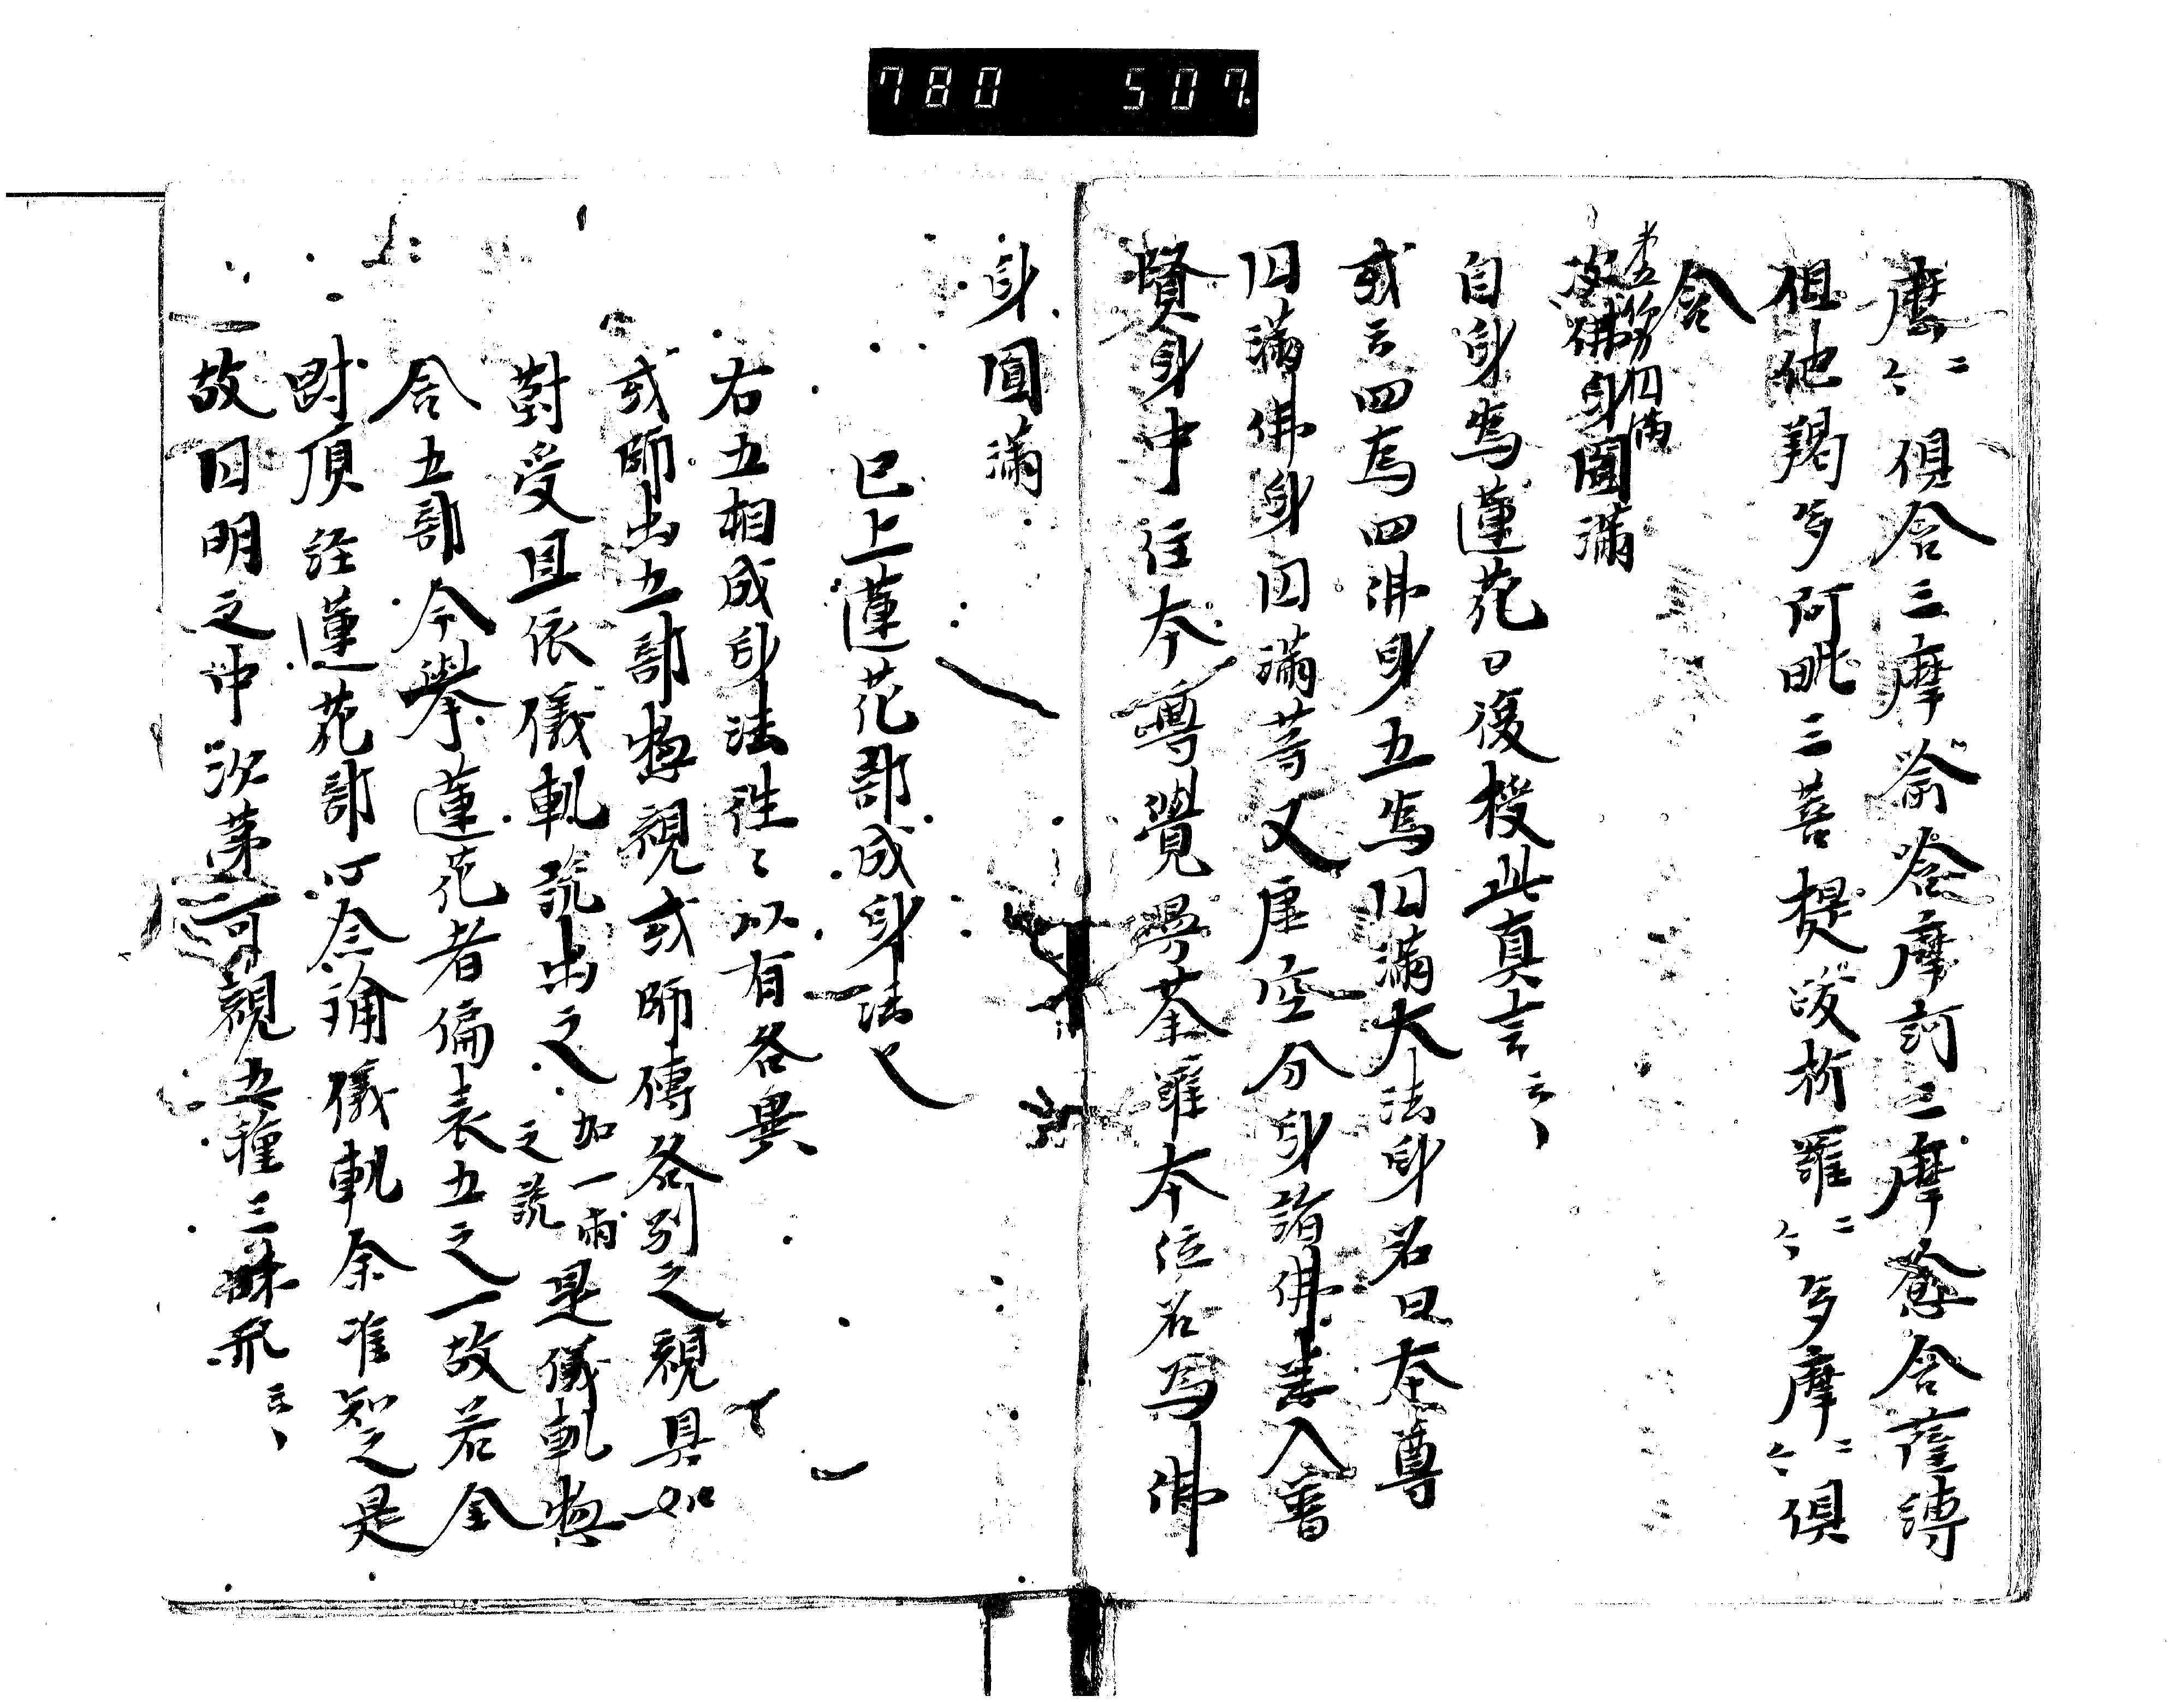 780 507.
摩二合俱含三摩喩唅摩訶三摩愈含薩縛
怛他羯多阿毗三菩提跋折羅二合多摩二合俱
含
第五段円満
及佛身圓滿
自身為蓮花曰復授此真言云々
或云四為四佛身五為円滿大法身名曰本尊
円滿佛身円滿等又虛空分身諸佛悉入普
賢身中住本尊覺曼荼羅本位名為佛
身圓滿
已上蓮花部成身法也
右五相成身法種々以有各異
或師出五部物親或師傳各別之親具如
對受且依儀軌說出之加一兩之說是儀軌物
含五部今舉蓮花者偏表五之一故若金
對頂經蓮花部心念誦儀軌余准知之是
一故円明之中次第可觀五種三昧形云々